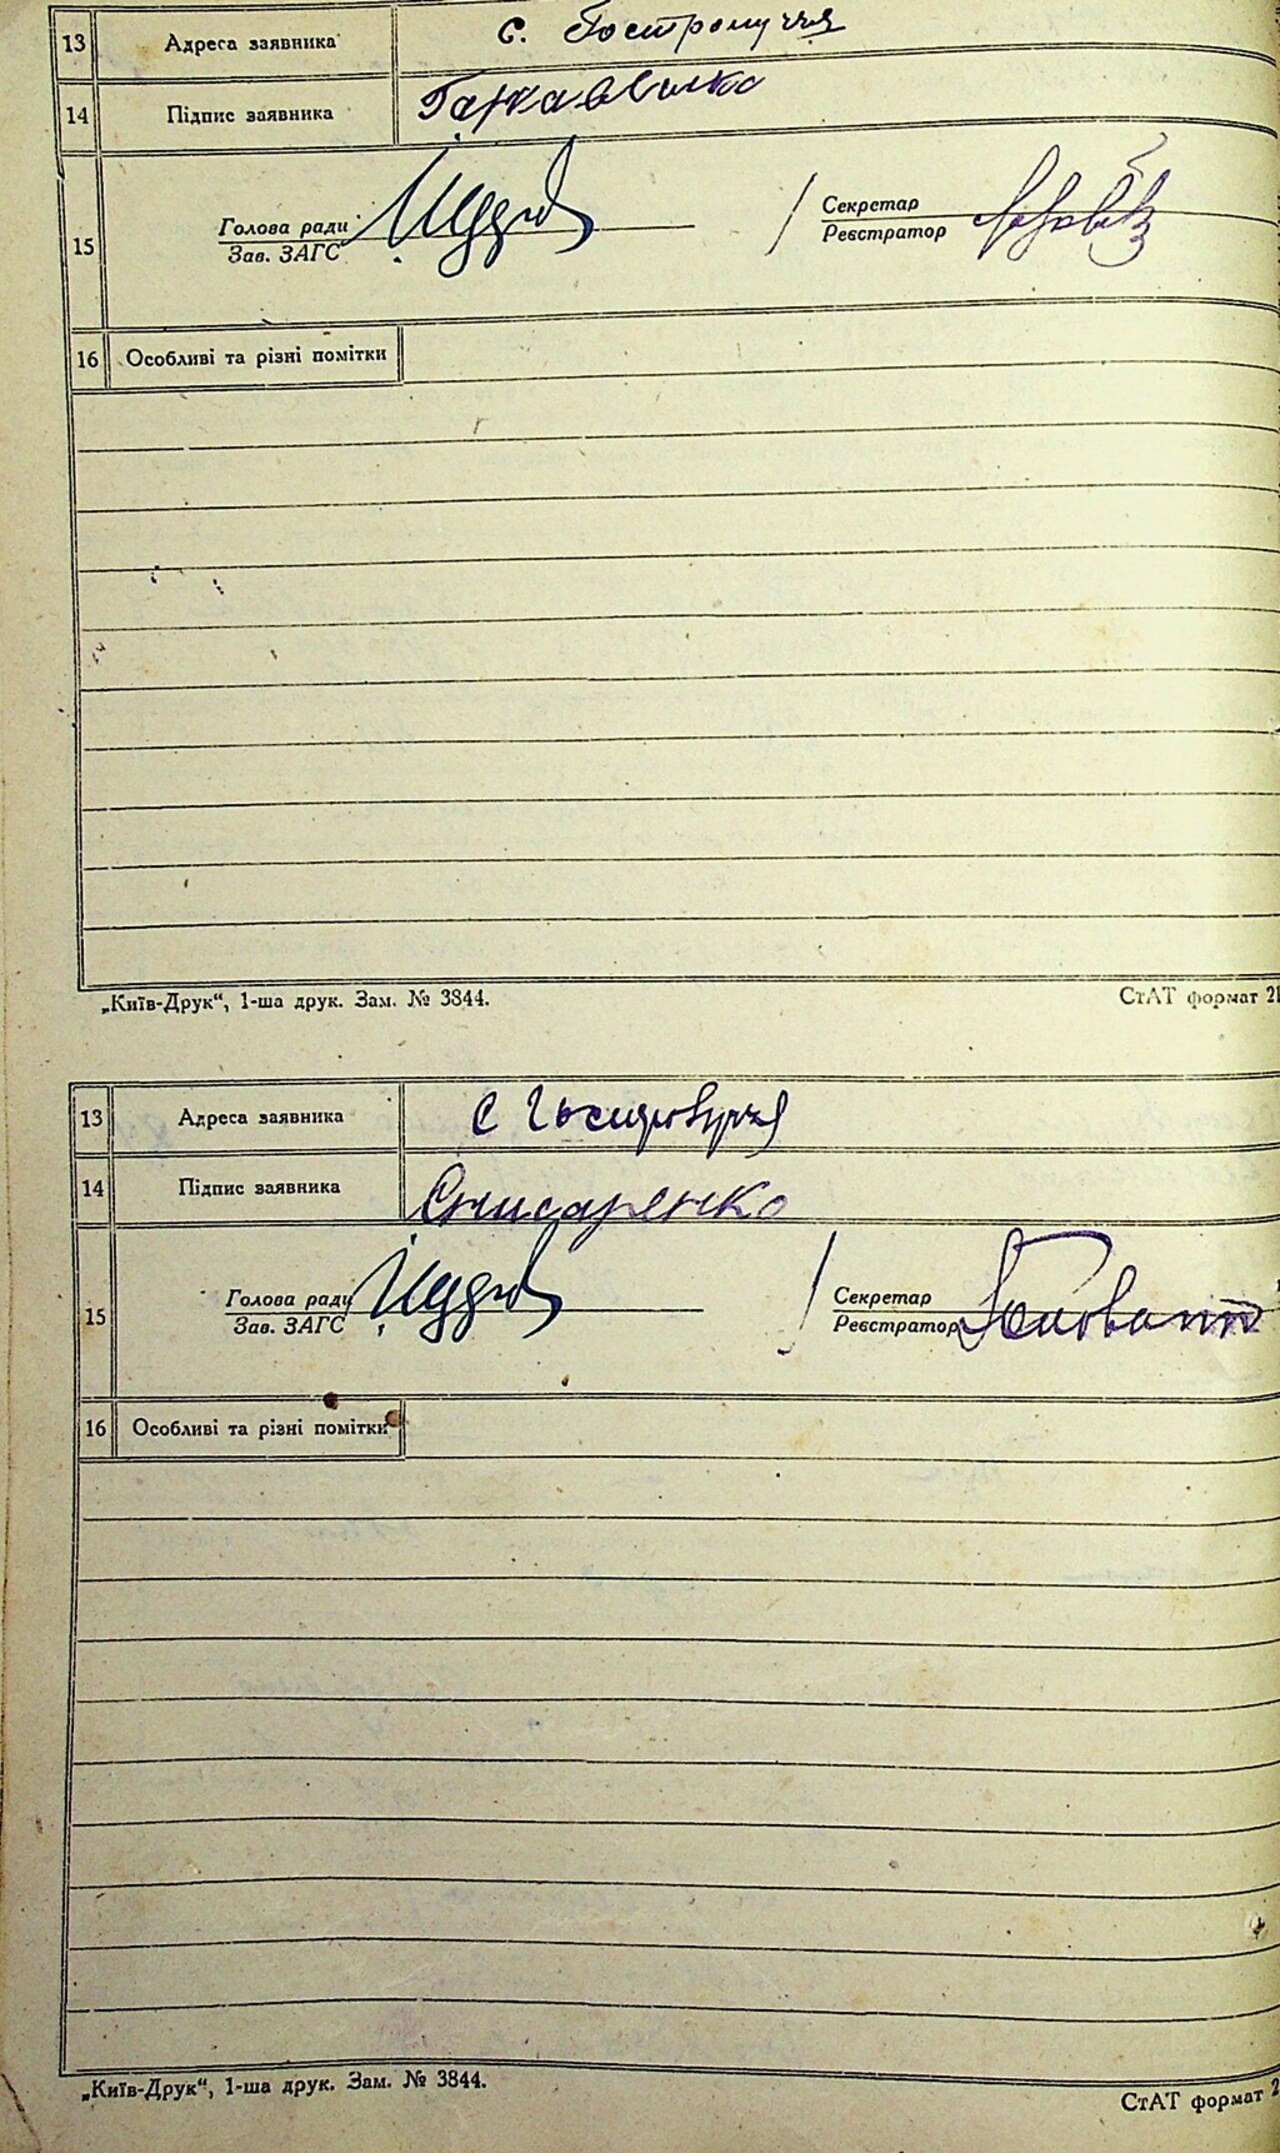 13 Адреса заявника с. Гостромуччя
14 Підпис заявника
15 Голова ради Секретар
Зав. ЗАГС Реєстратор
16 Особливі та різні помітки
„Київ-Друк“, 1-ша друк. Зам. № 3844. СтАТ формат 21
13 Адреса заявника с
14 Підпис заявника Снисаренко
15 Голова ради Секретар
Зав. ЗАГС Реєстратор
16 Особливі та різні помітки
„Київ-Друк“, 1-ша друк. Зам. № 3844. СтАТ формат 2